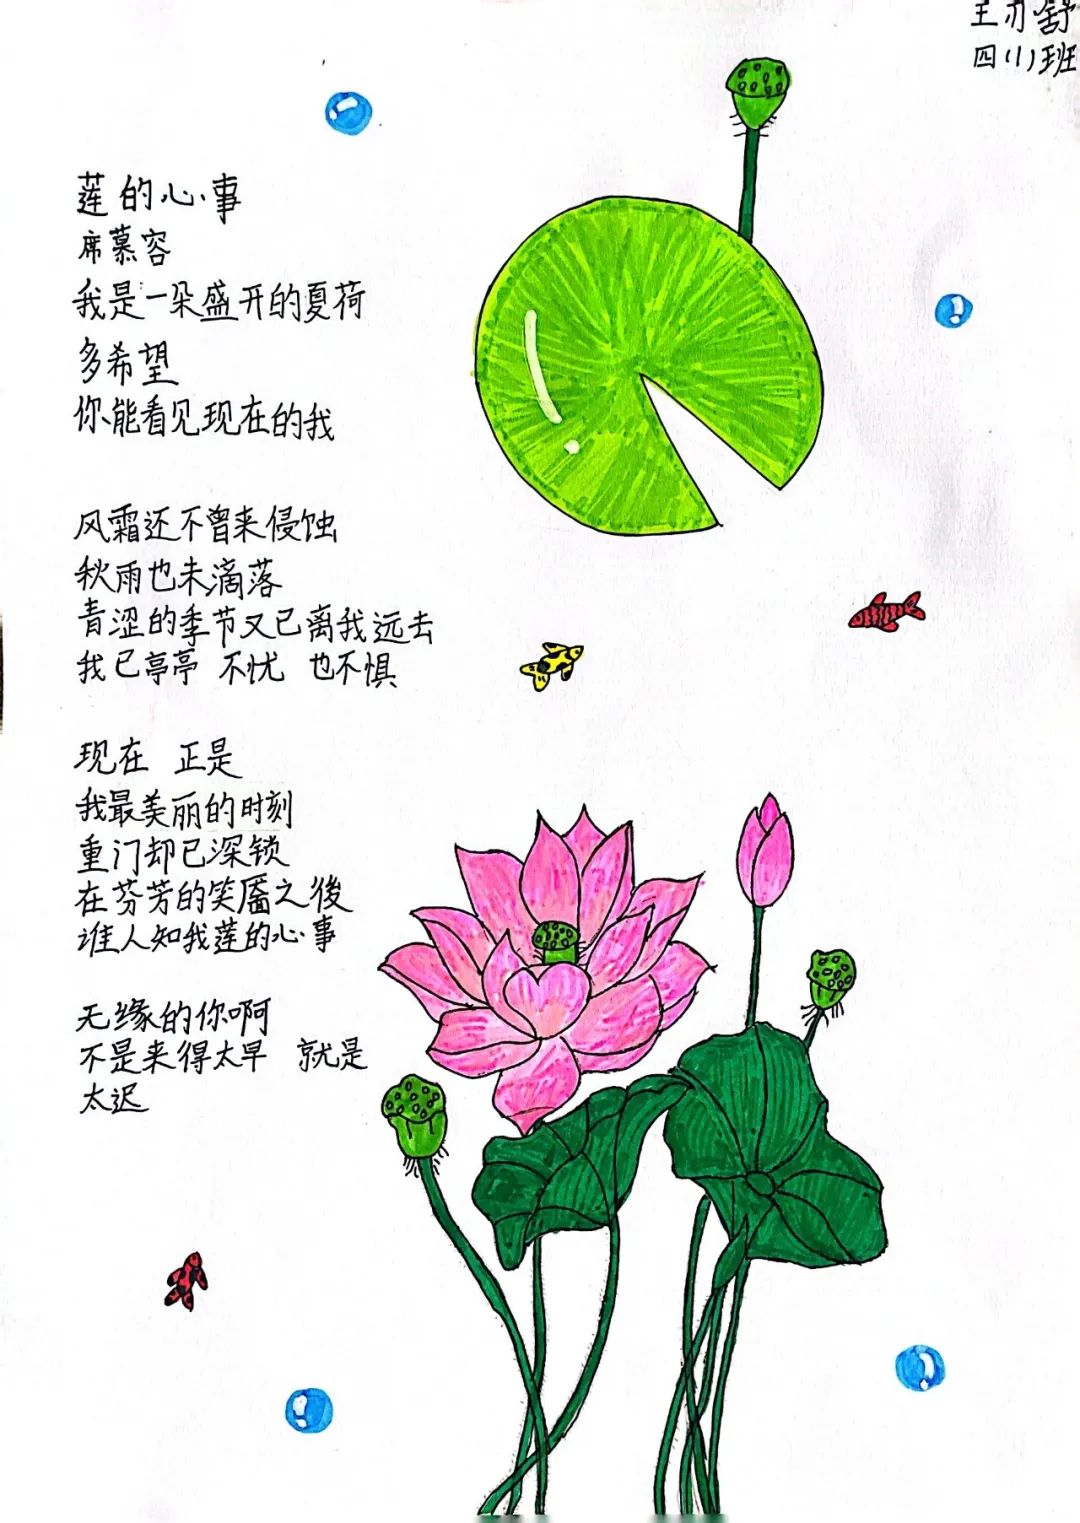 王亦舒
四(1)班
莲的心事
席慕容
我是一朵盛开的夏荷
多希望
你能看见现在的我
风霜还不曾来侵蚀
秋雨也未滴落
青涩的季节又已离我远去
我已亭亭 不忧 也不惧
现在 正是
我最美丽的时刻
重门却已深锁
在芬芳的笑靥之後
谁人知我莲的心事
无缘的你啊
不是来得太早 就是
太迟